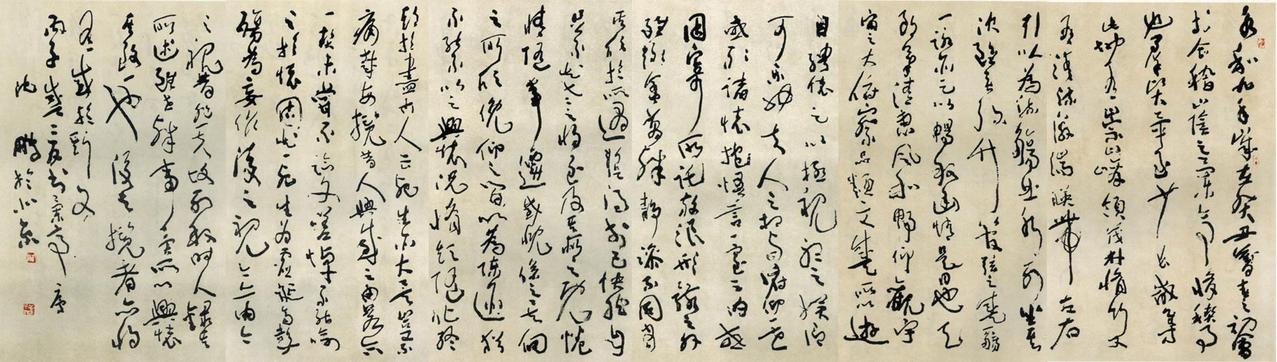 永和九年歲在癸丑暮春之初會
於會稽山陰之蘭亭脩禊事
也群賢畢至少長咸集
此地有崇山峻領茂林脩竹又
有清流激湍暎帶左右
引以為流觴曲水列坐其
次雖無絲竹管弦之盛一觴
一詠亦足以暢敘幽情是日也天
朗氣清惠風和暢仰觀宇
宙之大俯察品類之盛所以遊
目騁懷足以極視聽之娛信
可樂也夫人之相與俯仰一世
或取諸懷抱悟言一室之內或
因寄所託放浪形骸之外
雖趣舍萬殊靜躁不同當
其欣於所遇暫得於己快然自
足不知老之將至及其所之既惓
情隨事遷感慨係之矣向
之所欣俛仰之間以為陳迹猶
不能不以之興懷況脩短隨化終
期於盡古人云死生亦大矣豈不
痛哉每攬昔人興感之由若合
一契未嘗不臨文嗟悼不能喻
之於懷固知一死生為虛誕齊彭
殤為妄作後之視今亦由今
之視昔悲夫故列敘時人錄其
所述雖世殊事異所以興懷
其致一也後之攬者亦將
有感於斯文
丙子盛夏書蘭亭序
沈鵬於北京